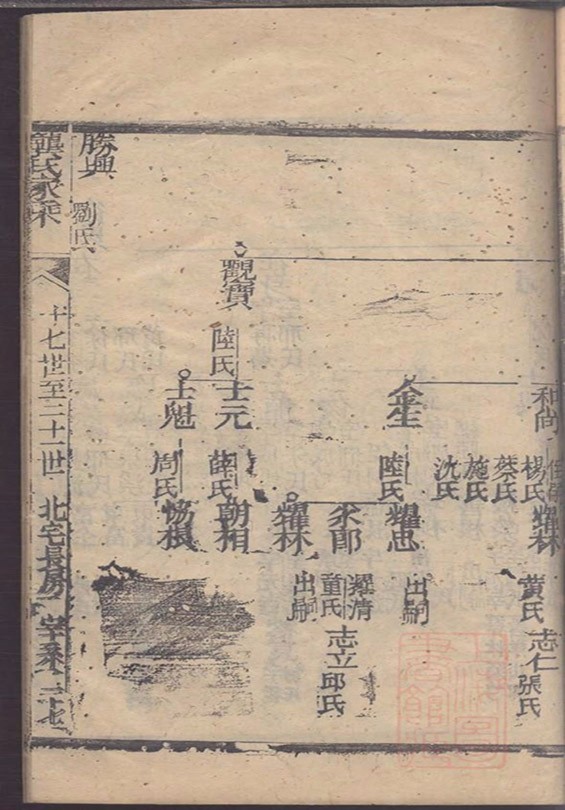 和尚
楊氏
蔡氏
施氏
沈氏
耀林
黃氏
志仁
張氏
金生
陸氏
耀忠
出嗣
永郎
耀清
童氏
志立
邱氏
耀林
出嗣
觀寶
陸氏
士元
薛氏
朝相
士魁
周氏
協根
勝興
劉氏
龔氏家乘
十七世至二十一世
北宅長房